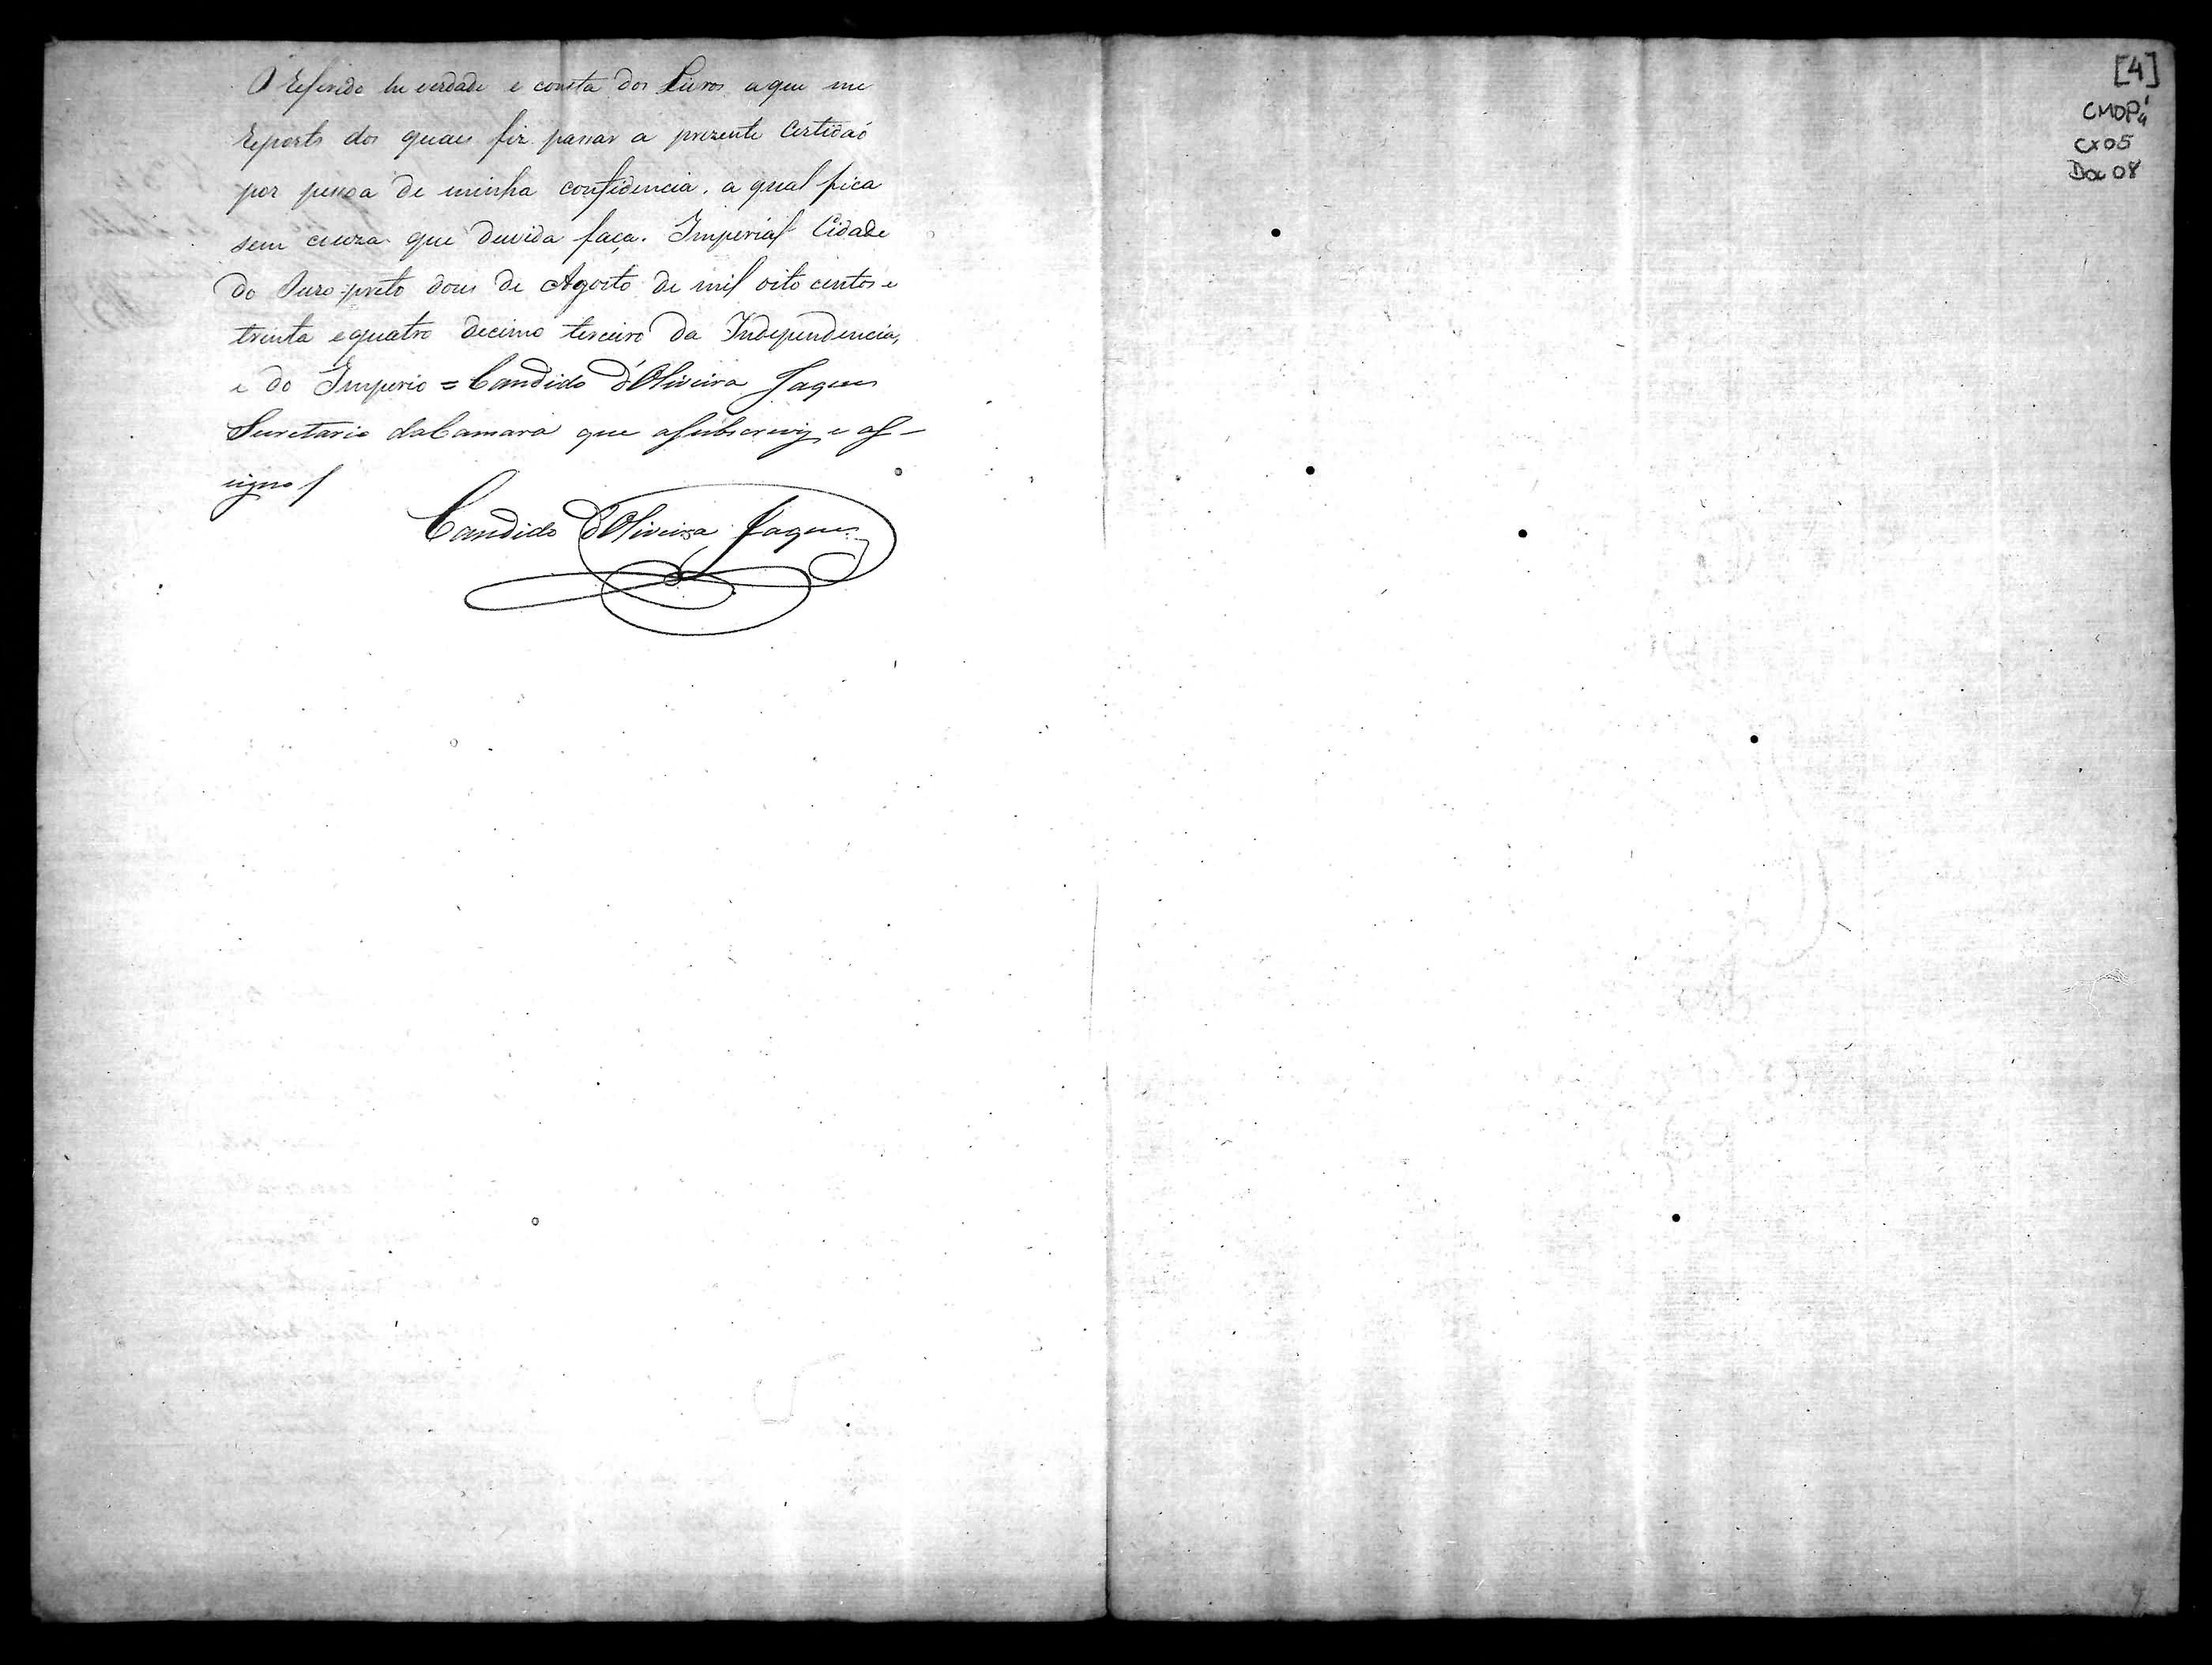 O referido he verdade e consta dos Livros aque me
reporto dos quaes fiz passar a prezente Certidaõ
por pessoa de minha confidencia, a qual fica
sem couza que duvida faça. Imperial Cidade
do Ouro-preto dous de Agosto de mil oito centos e
trinta equatro decimo terceiro da Independencia,
e do Imperio = Candido d'Oliveira Jaques
Secretario daCamara que asubscrevy e as-
signo
Candido d'Oliveira Jaques
[4]
CMOP
Cx05
Doc 08